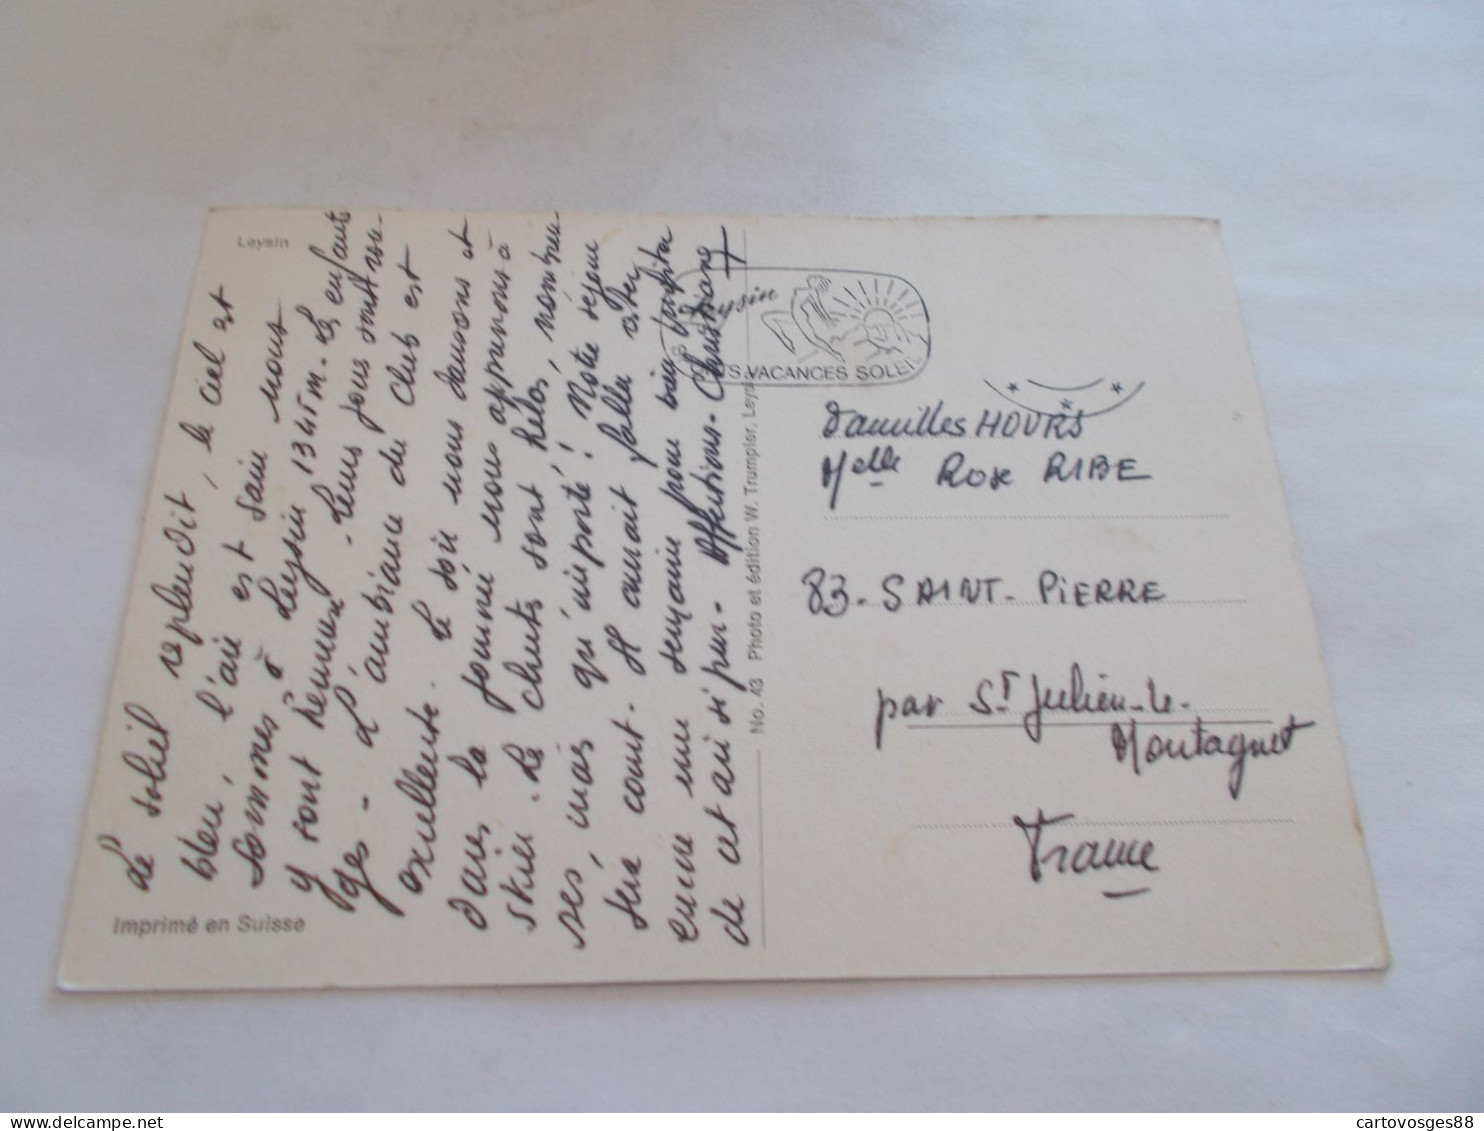 Leysin
Le soleil resplendit, le ciel est
bleu, l'air est sain nous
sommes à Leysin 1345m. Les enfants
y sont heureux. Leurs joues sont rou-
ges. L'ambiance du Club est
excellente. Le soir nous dansons et
dans la journée nous apprenons à
skier. Les chutes sont, hélas, nombreu-
ses, mais qu'importe! Notre séjour
sera court. Il aurait fallu
encore une semaine pour bien profiter
de cet air si pur. Affections. Christiane
Imprimé en Suisse
No. 43 Photo et édition W. Trumpler, Leysin
Leysin
SPORTS VACANCES SOLEIL
Familles HOURS
Melle Rose RIBE
83. SAINT. PIERRE
par ST Julien-le-
Montagnet
France
cartovosges88